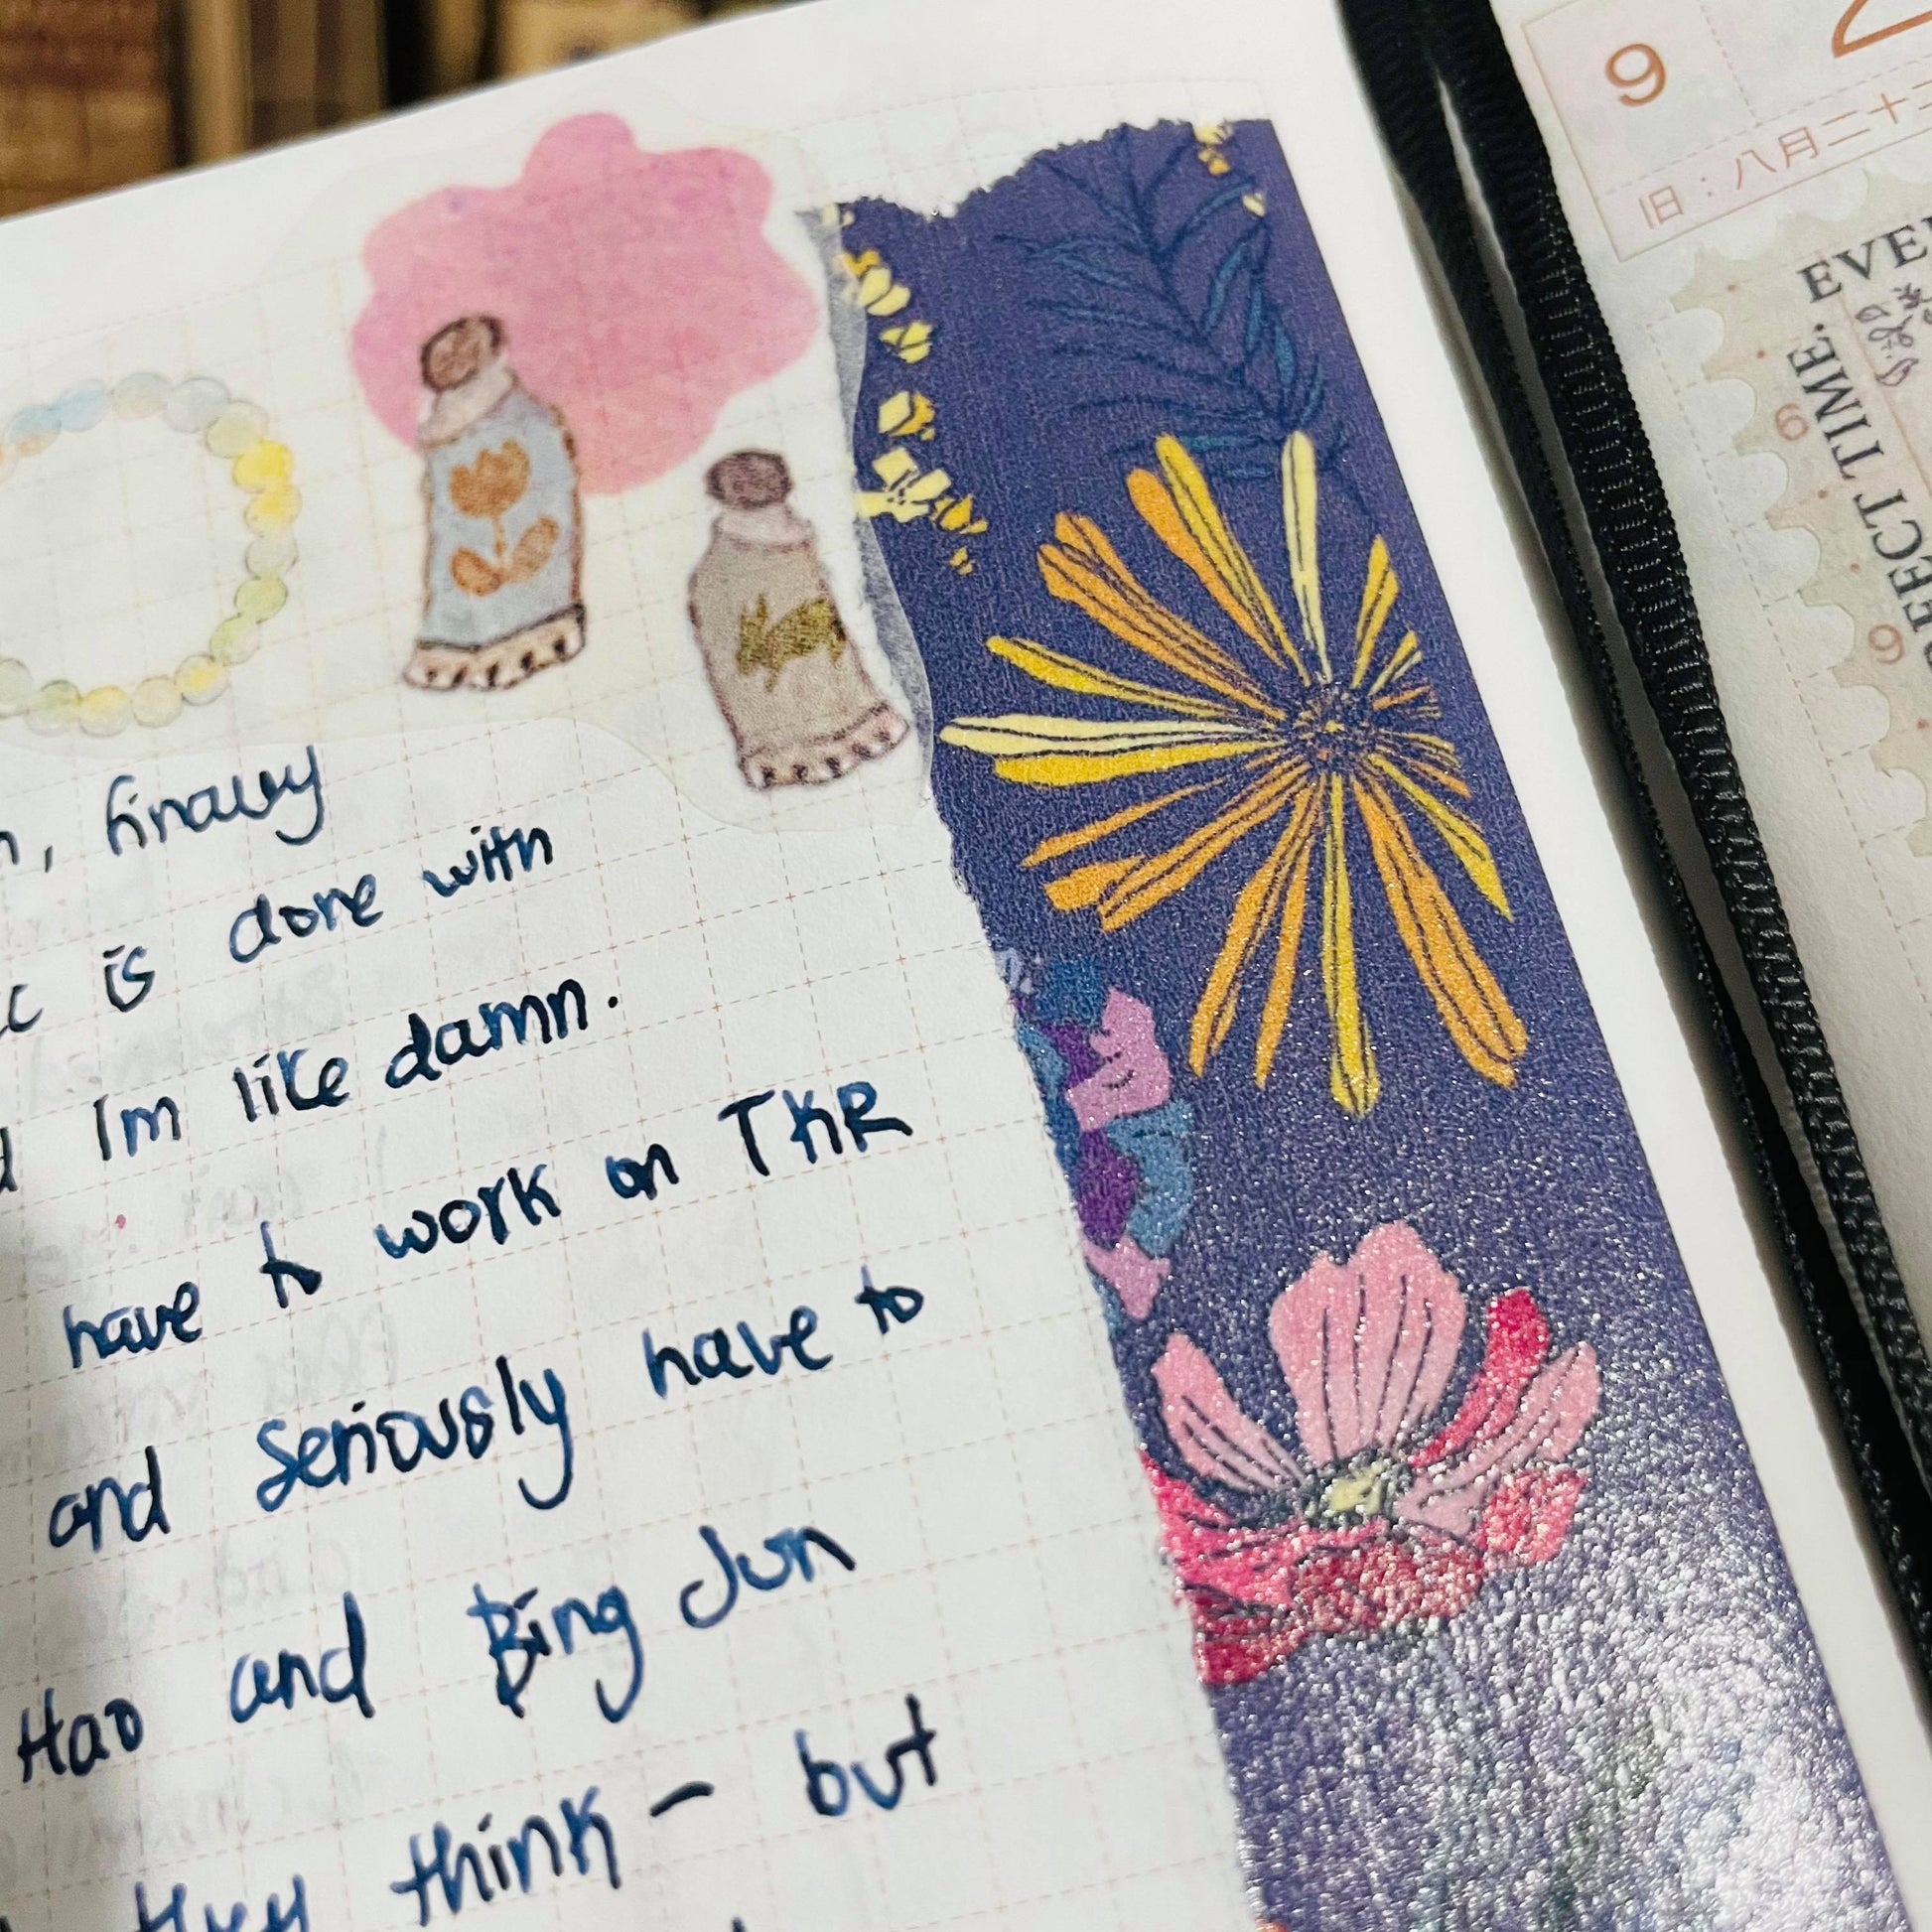 , finally
is done with
Im like damn.
have to work on TKR
and seriously have to
Hao and Bing Jun
they think – but
9
旧：八月二十
EVE
ECT TIME.
6
9